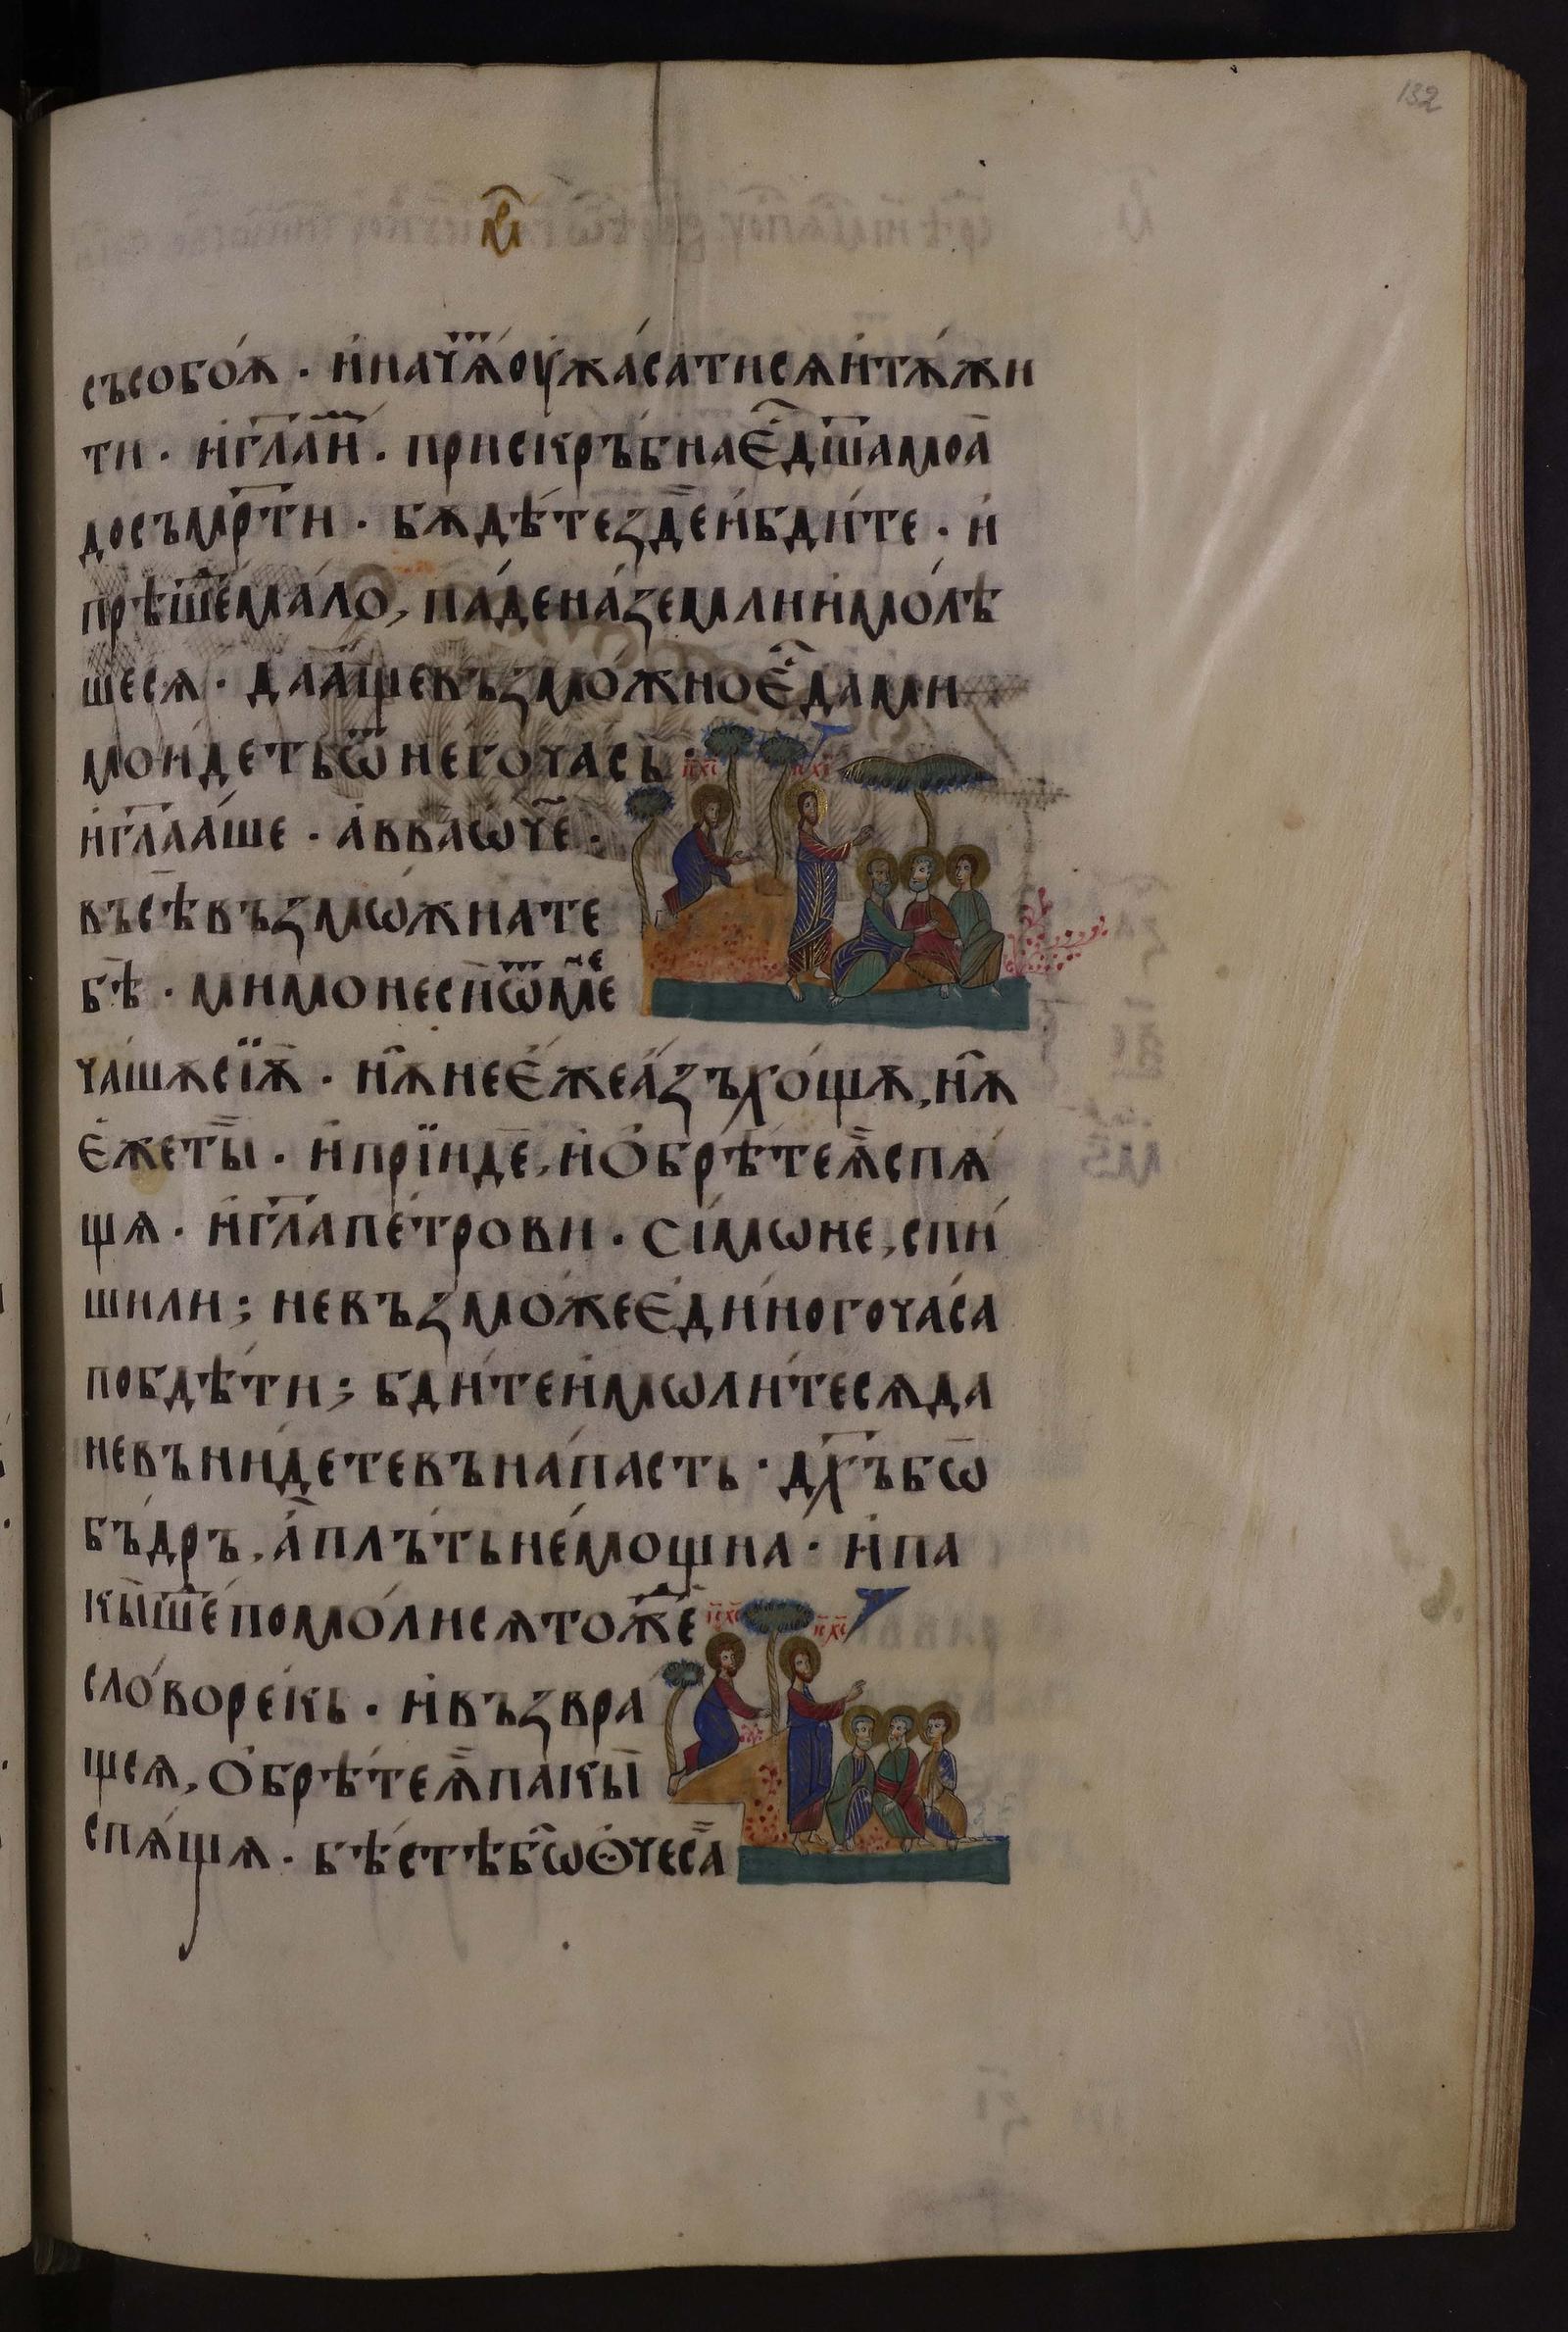 132
съсобоѫ · и҆нач҃ѧоу҆жа́сатисѧи҆тѫ́жи
ти · и҆гл҃аи҆̈ · прискръ́бнає҆̑дш҃амоа̀
досъмр҃ти · бѫдѣ́тездє̄и҆бди́те · и҆
прѣше́ма́ло, па́дена́землии҆мо́лѣ
шесѧ · даа҆́щевъзмо́жноє҆̑дами
мои́детьѿнего́ча́съ ·
і҃с х҃с і҃с х҃с
и҆гл҃аа́ше · а҆вваѡ҆ч҃е ·
въсѣ̀възмѡ́жнате
бѣ̀ · мимонеси̑ѿме́не
ча́шѫсїѫ̀ · нѫ̑неє҆́жеа҆́зъхо́щѫ, нѫ̑
є҆́жеты̀ · и҆прїиде, и҆ѻ҆брѣ́теѧ҆̀спѧ́
щѧ · и҆гл҃апе́трови · сі́мѡне, спи́
шили ; невъзмо́жеє҆ди́ногоча́са
побдѣ́ти ; бди́теи҆мѡли́тесѧда
невъни́детевъна́пасть · дх҃ъбѡ
бъ́дръ, а҆̀плъ́тьне́мощна · и҆па
кы̀ше́помо́лисѧто́ж҃е
і҃с х҃с і҃с х҃с
сло́воре́кь · и҆възвра
щсѧ, ѻ҆брѣ́теѧ҆̀пакы̀
спѧ́щѧ · бѣ́стѣбѡ̑ѻ҆чеса̀